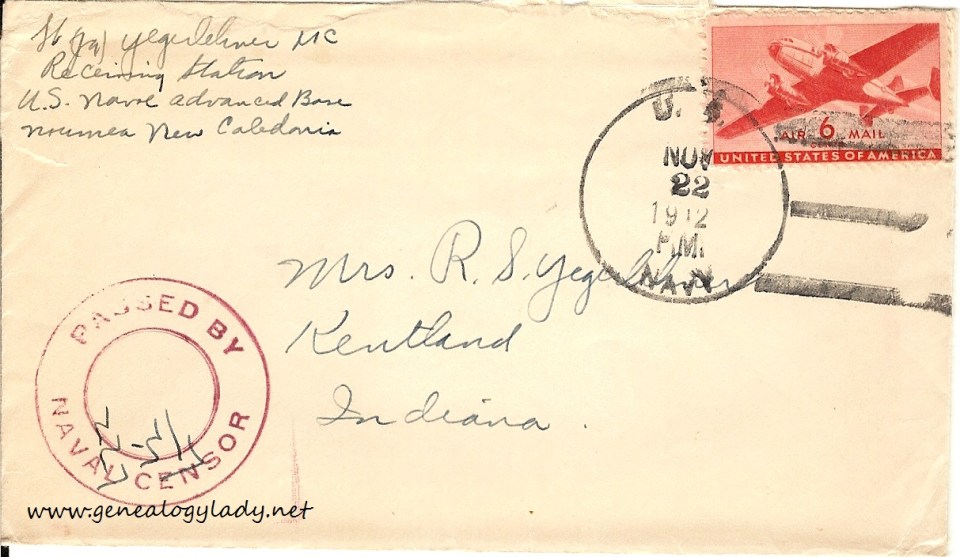 Lt (jg) Yegerlehner MC
Receiving Station
U.S. Naval Advanced Base
Noumea New Caledonia
AIR 6 MAIL
UNITED STATES OF AMERICA
U. S.
NOV
22
1942
P.M.
NAVY
Mrs. R. S. Yegerlehner
Kentland
Indiana.
PASSED BY
NAVAL CENSOR
www.genealogylady.net